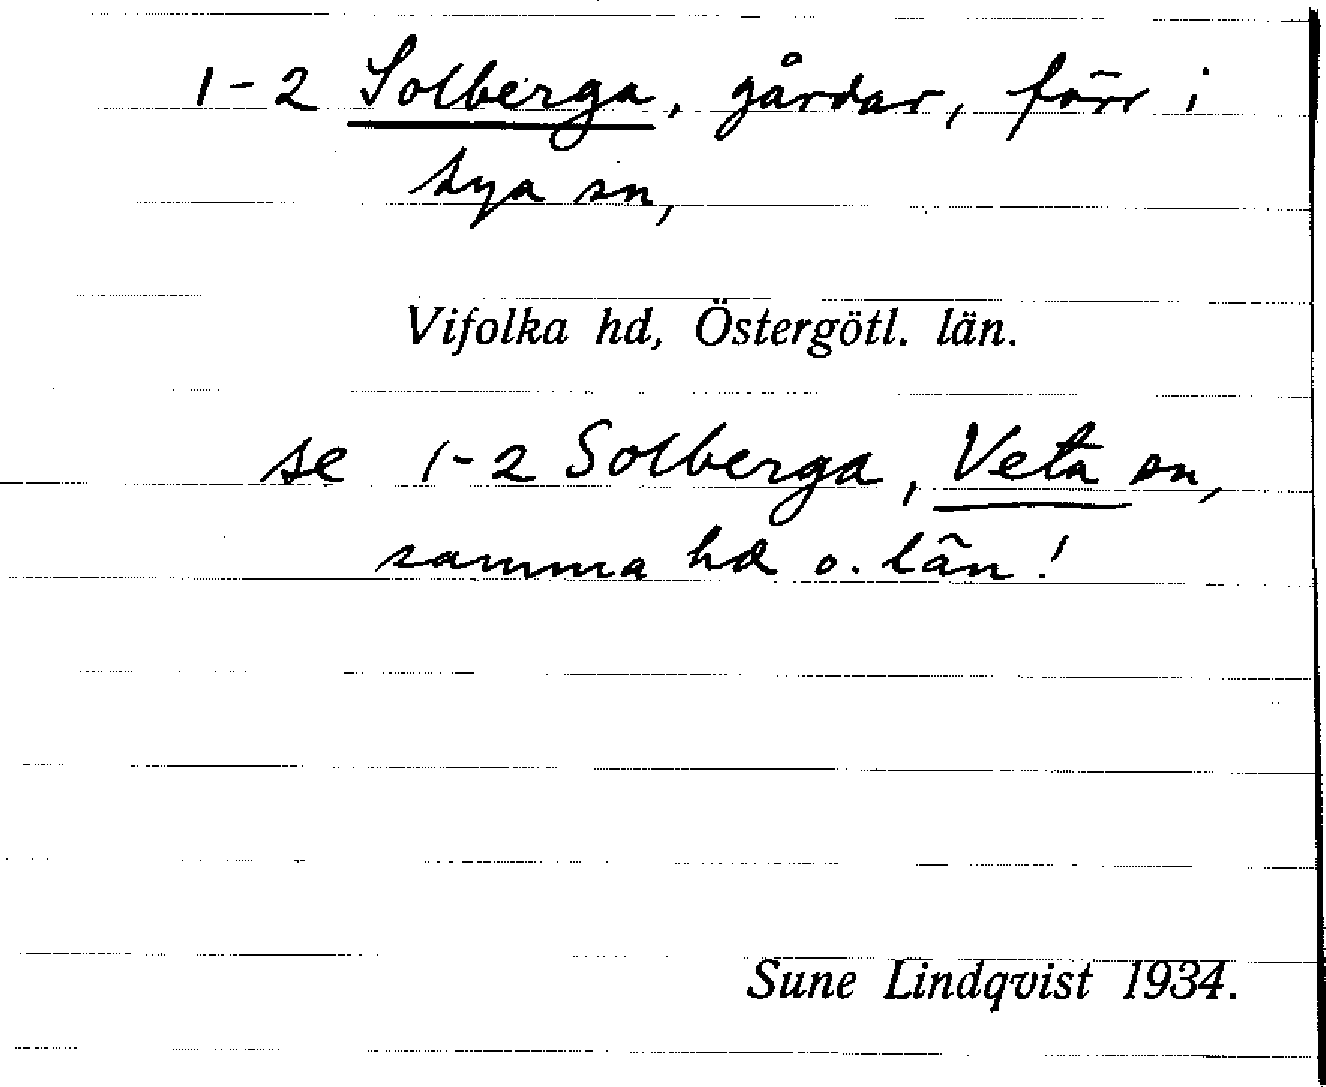 1-2 Solberga, gårdar, förr i
Sya sn,
Vifolka hd, Östergötl. län.
se 1-2 Solberga, Veta sn,
samma hd o. län!
Sune Lindqvist 1934.